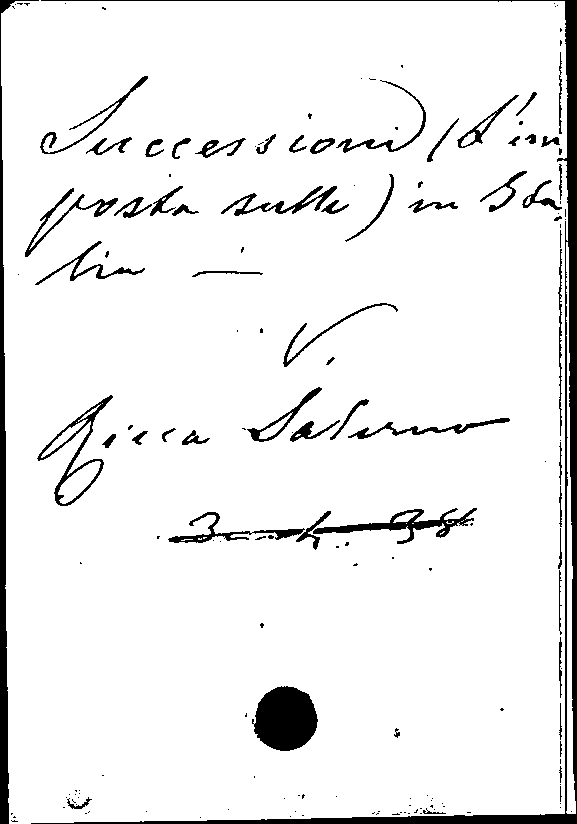 Successioni (L'im-
posta sulle) in Ita-
lia —
V.
Ricca Salerno
3 4 38